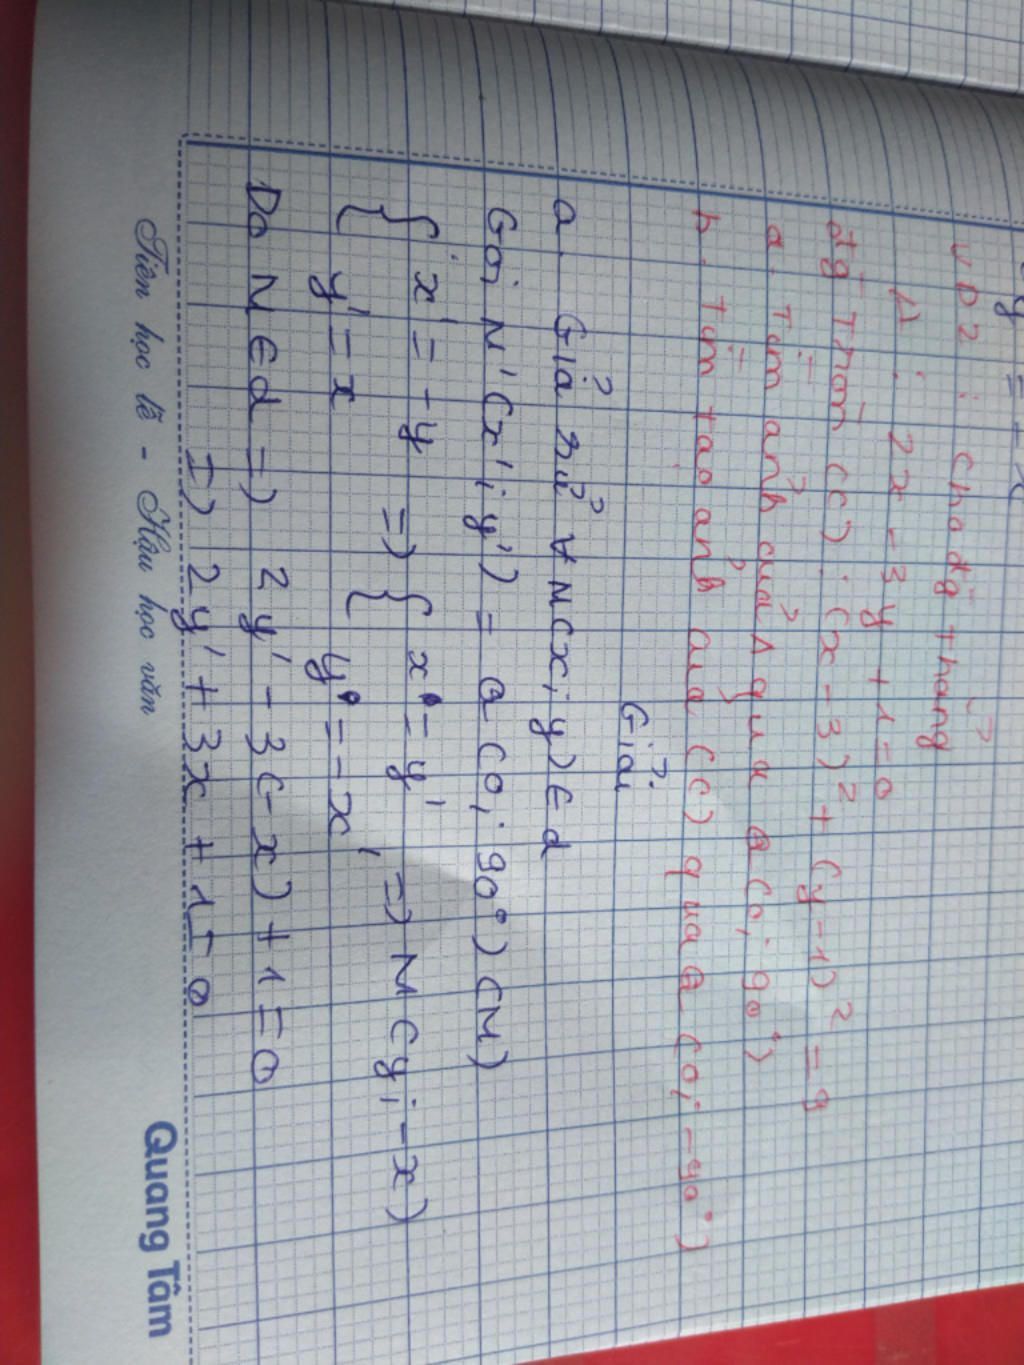 y = - x
VD2 : Cho đg thẳng
Δ : 2x - 3y + 1 = 0
đg tròn (C) : (x - 3)² + (y - 1)² = 9
a. Tìm ảnh của Δ qua Q(O; 90°)
b. Tìm tạo ảnh của (C) qua Q(O; -90°)
Giải
a. Giả sử ∀ M(x; y) ∈ d
Gọi M'(x'; y') = Q(O; 90°)(M)
{ x' = -y ⇒ { x = y' ⇒ M(y; -x)
{ y' = x { y = -x'
Do M ∈ d ⇒ 2y' - 3(-x) + 1 = 0
⇒ 2y' + 3x + 1 = 0
Tiên học lễ - Hậu học văn
Quang Tâm